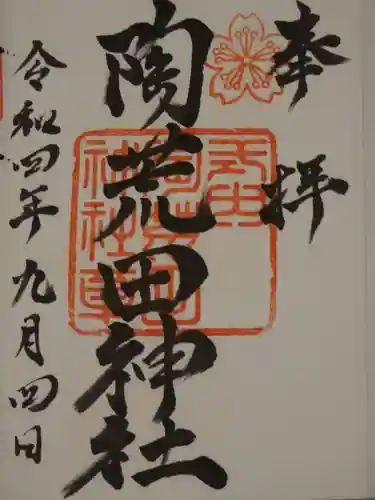 奉拝
陶荒田神社
令和四年九月四日